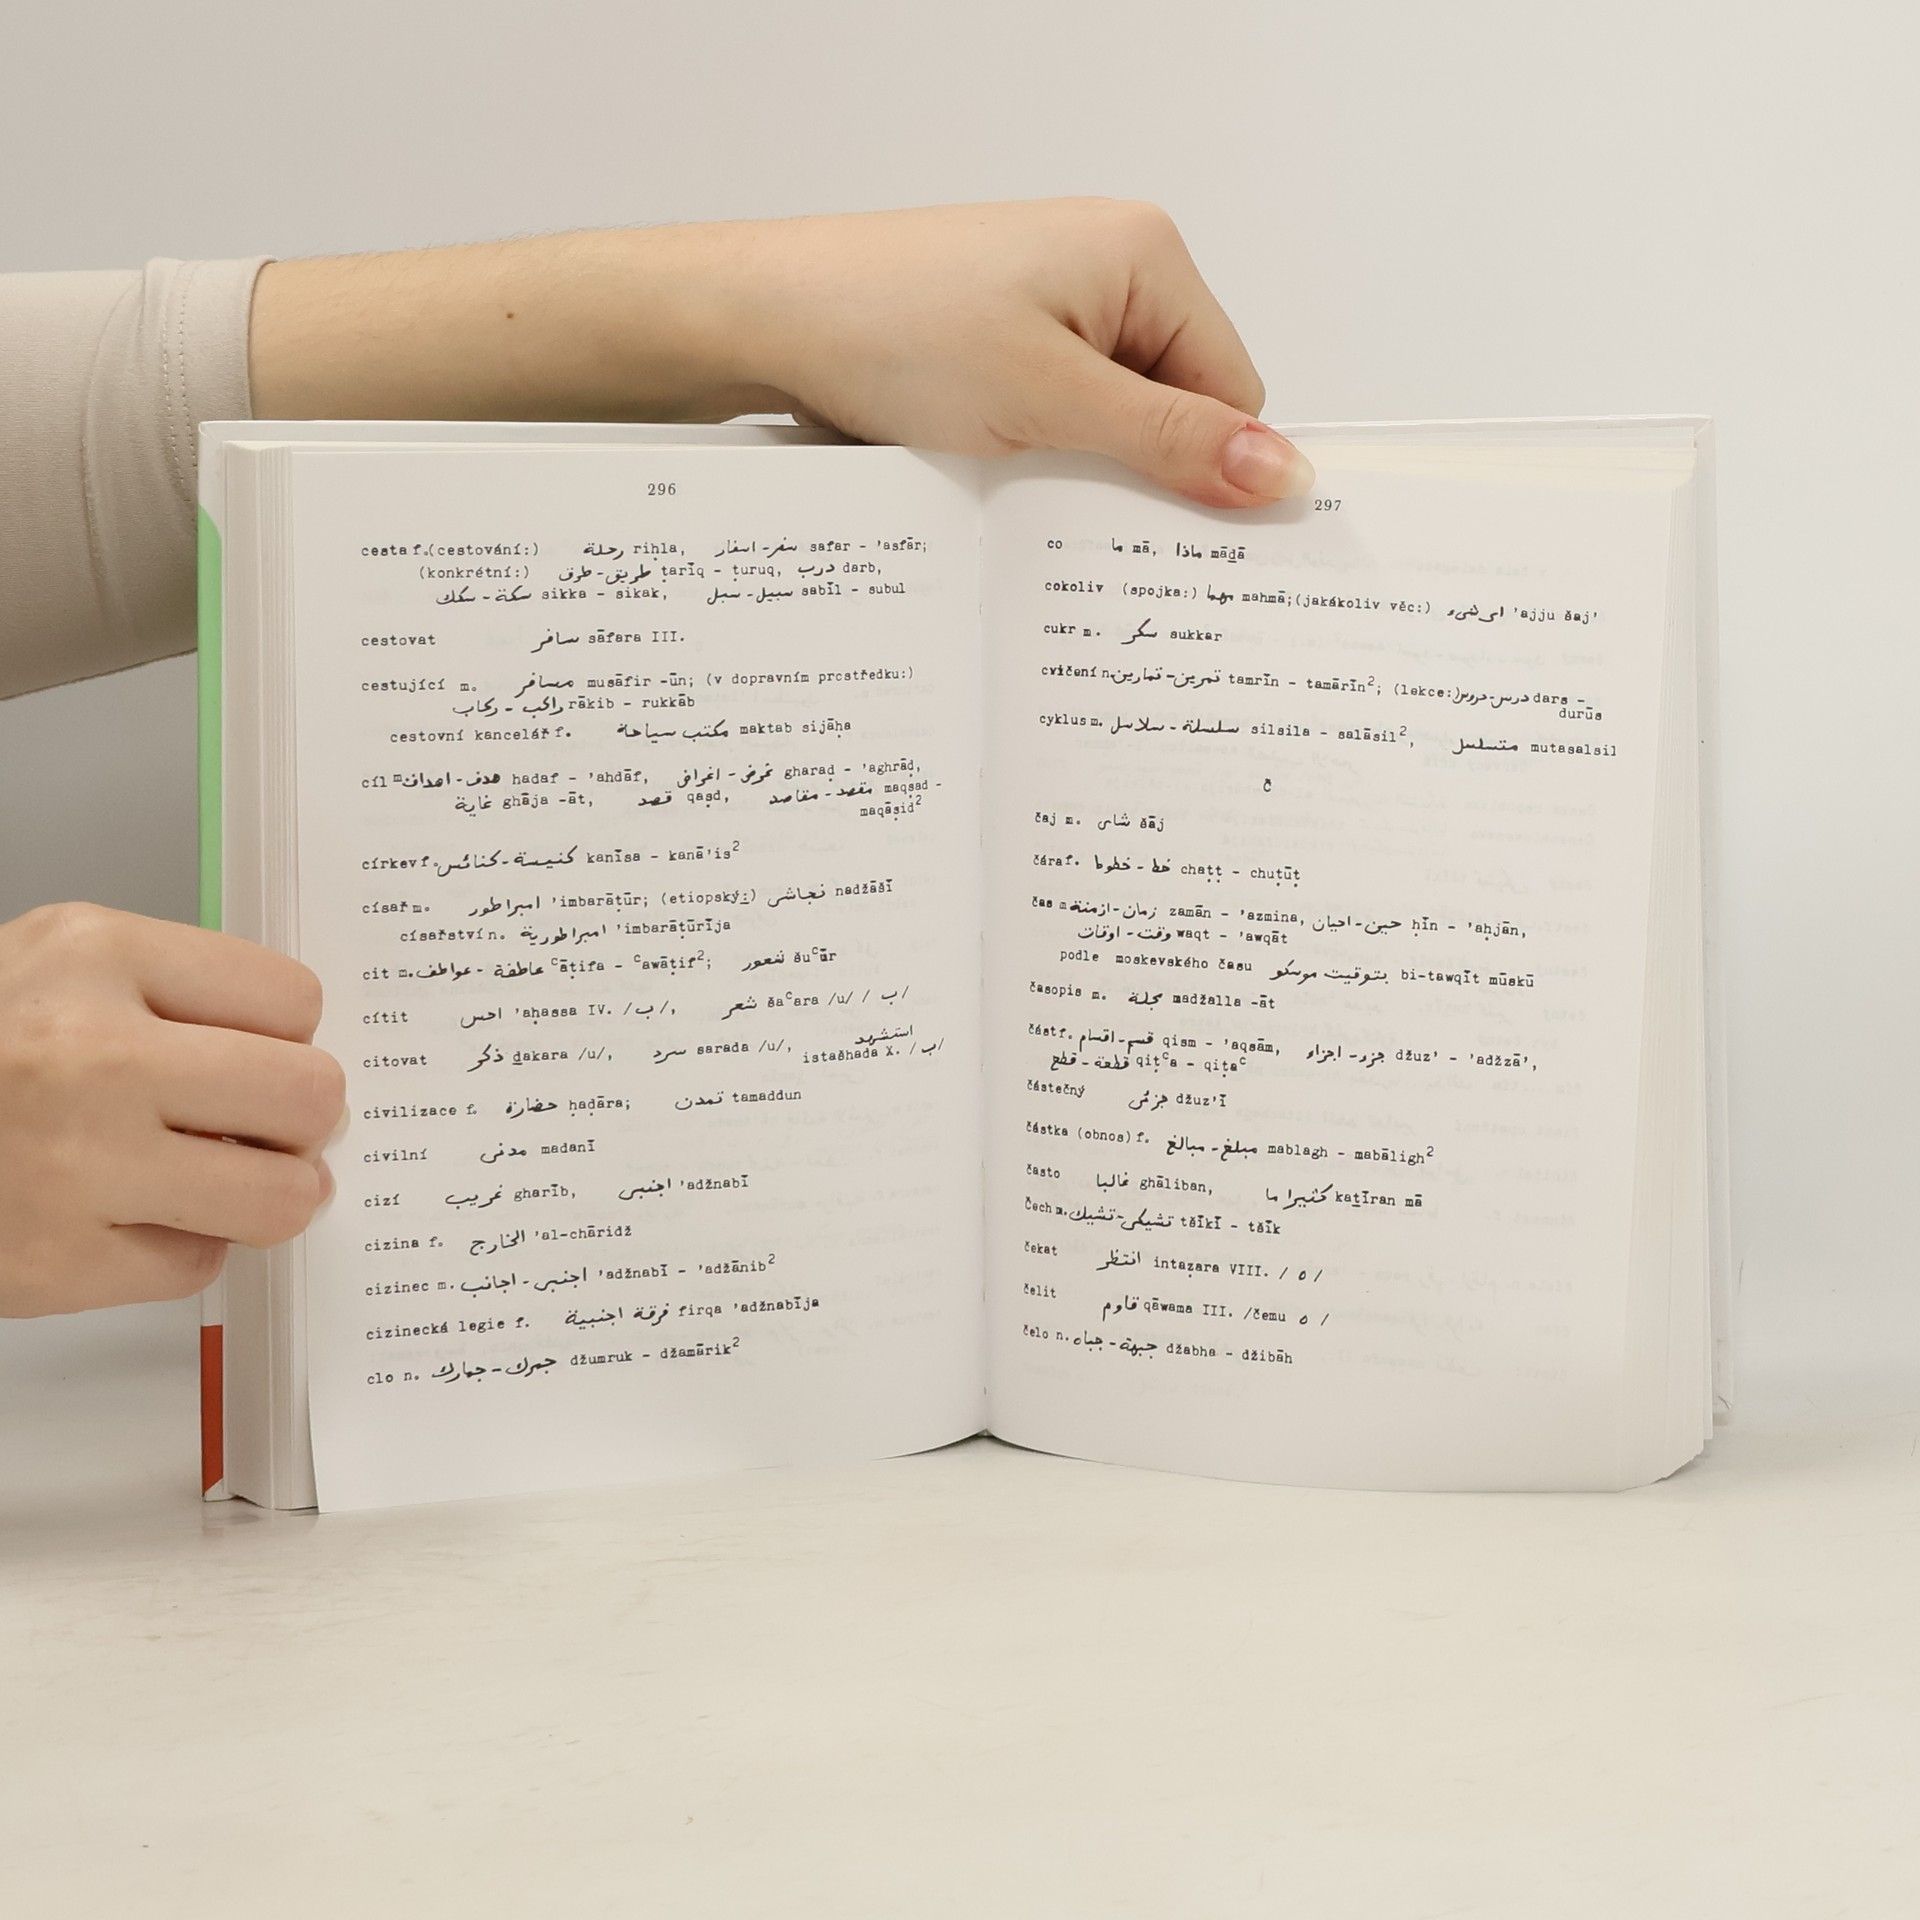 296
cesta f.(cestování:) رحلة riḥla, سفر - اسفار safar - 'asfār;
(konkrétní:) طريق - طرق ṭarīq - ṭuruq, درب darb,
سكة - سكك sikka - sikak, سبيل - سبل sabīl - subul
cestovat سافر sāfara III.
cestující m. مسافر musāfir -ūn; (v dopravním prostředku:)
راكب - ركاب rākib - rukkāb
cestovní kancelář f. مكتب سياحة maktab sijāḥa
cíl m. هدف - اهداف hadaf - 'ahdāf, غرض - اغراض gharaḍ - 'aghrāḍ,
غاية ghāja -āt, قصد qaṣd, مقصد - مقاصد maqṣad -
maqāṣid²
církev f. كنيسة - كنائس kanīsa - kanā'is²
císař m. امبراطور 'imbarāṭūr; (etiopský:) نجاشى nadžāšī
císařství n. امبراطورية 'imbarāṭūrīja
cit m. عاطفة - عواطف ᶜāṭifa - ᶜawāṭif²; شعور šuᶜūr
cítit احس 'aḥassa IV. /ب/, شعر šaᶜara /u/ /ب/
citovat ذكر ḏakara /u/, سرد sarada /u/, استشهد
istašhada X. /ب/
civilizace f. حضارة ḥaḍāra; تمدن tamaddun
civilní مدنى madanī
cizí غريب gharīb, اجنبى 'adžnabī
cizina f. الخارج 'al-chāridž
cizinec m. اجنبى - اجانب 'adžnabī - 'adžānib²
cizinecká legie f. فرقة اجنبية firqa 'adžnabīja
clo n. جمرك - جمارك džumruk - džamārik²
297
co ما mā, ماذا māḏā
cokoliv (spojka:) مهما mahmā;(jakákoliv věc:) اى شىء 'ajju šaj'
cukr m. سكر sukkar
cvičení n. تمرين - تمارين tamrīn - tamārīn²; (lekce:) درس - دروس dars -
durūs
cyklus m. سلسلة - سلاسل silsila - salāsil², متسلسل mutasalsil
č
čaj m. شاى šāj
čára f. خط - خطوط chaṭṭ - chuṭūṭ
čas m. زمان - ازمنة zamān - 'azmina, حين - احيان ḥīn - 'aḥjān,
وقت - اوقات waqt - 'awqāt
podle moskevského času بتوقيت موسكو bi-tawqīt mūskū
časopis m. مجلة madžalla -āt
část f. قسم - اقسام qism - 'aqsām, جزء - اجزاء džuz' - 'adžzā',
قطعة - قطع qiṭᶜa - qiṭaᶜ
částečný جزئى džuz'ī
částka (obnos) f. مبلغ - مبالغ mablagh - mabāligh²
často غالبا ghāliban, كثيرا ما kaṯīran mā
Čech m. تشيكى - تشيك tšīkī - tšīk
čekat انتظر intaẓara VIII. / ه /
čelit قاوم qāwama III. /čemu ه /
čelo n. جبهة - جباه džabha - džibāh